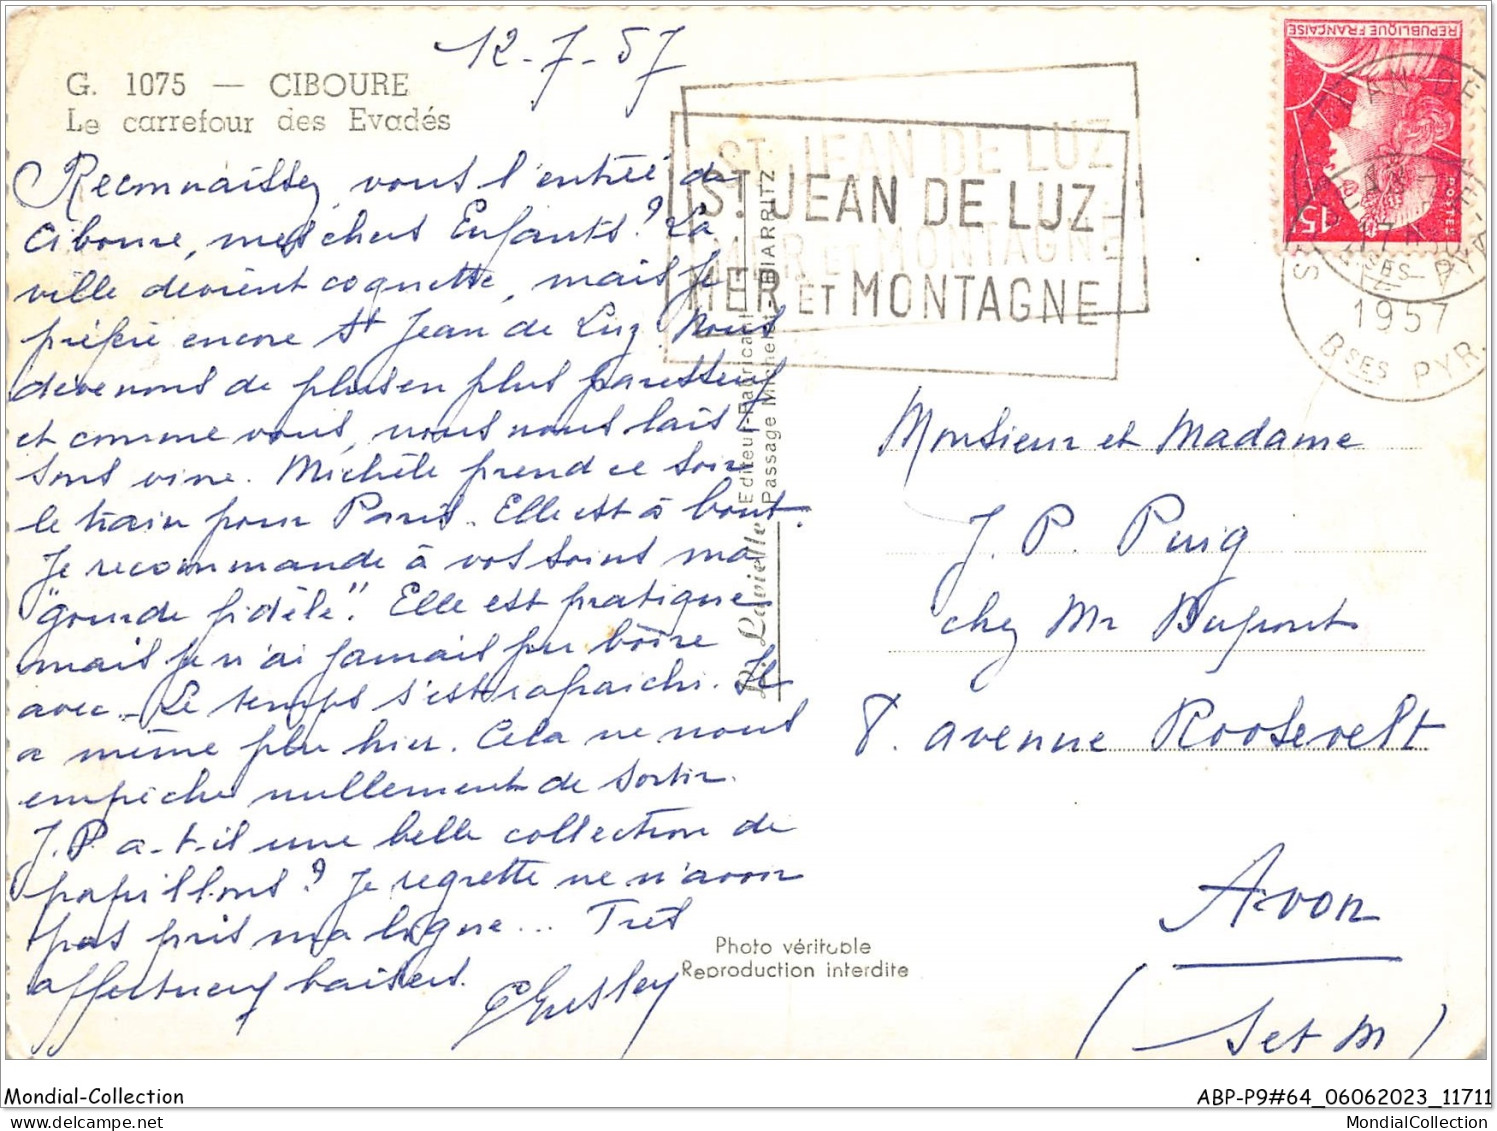 12-7-57
G. 1075 — CIBOURE
Le carrefour des Evadés
Reconnaissez vous l'entrée de
Ciboure, mes chers Enfants? La
ville devient coquette, mais je
préfère encore St Jean de Luz. Nous
devenons de plus en plus paresseux
et comme vous, nous nous lais-
sons vivre. Michèle prend ce soir
le train pour Paris. Elle est à bout.
Je recommande à vos soins ma
"gourde fidèle". Elle est pratique
mais je n'ai jamais pu boire
avec. Le temps s'est rafraichi. Il
a même plu hier. Cela ne nous
empêche nullement de sortir.
J.P. a-t-il une belle collection de
papillons? Je regrette ne n'avoir
pas pris ma ligne... Très
affectueux baisers.
ST JEAN DE LUZ
MER ET MONTAGNE
ST JEAN DE LUZ
MER ET MONTAGNE
REPUBLIQUE FRANÇAISE
15F
POSTES
1957
BSES PYR.
Editeur-Fabricant
Passage Michelet - BIARRITZ
Monsieur et Madame
J. P. Puig
chez Mr Dupont
8. avenue Roosevelt
Avon
(Set M)
Photo véritable
Reproduction interdite
Mondial-Collection
ABP-P9#64_06062023_11711
MondialCollection